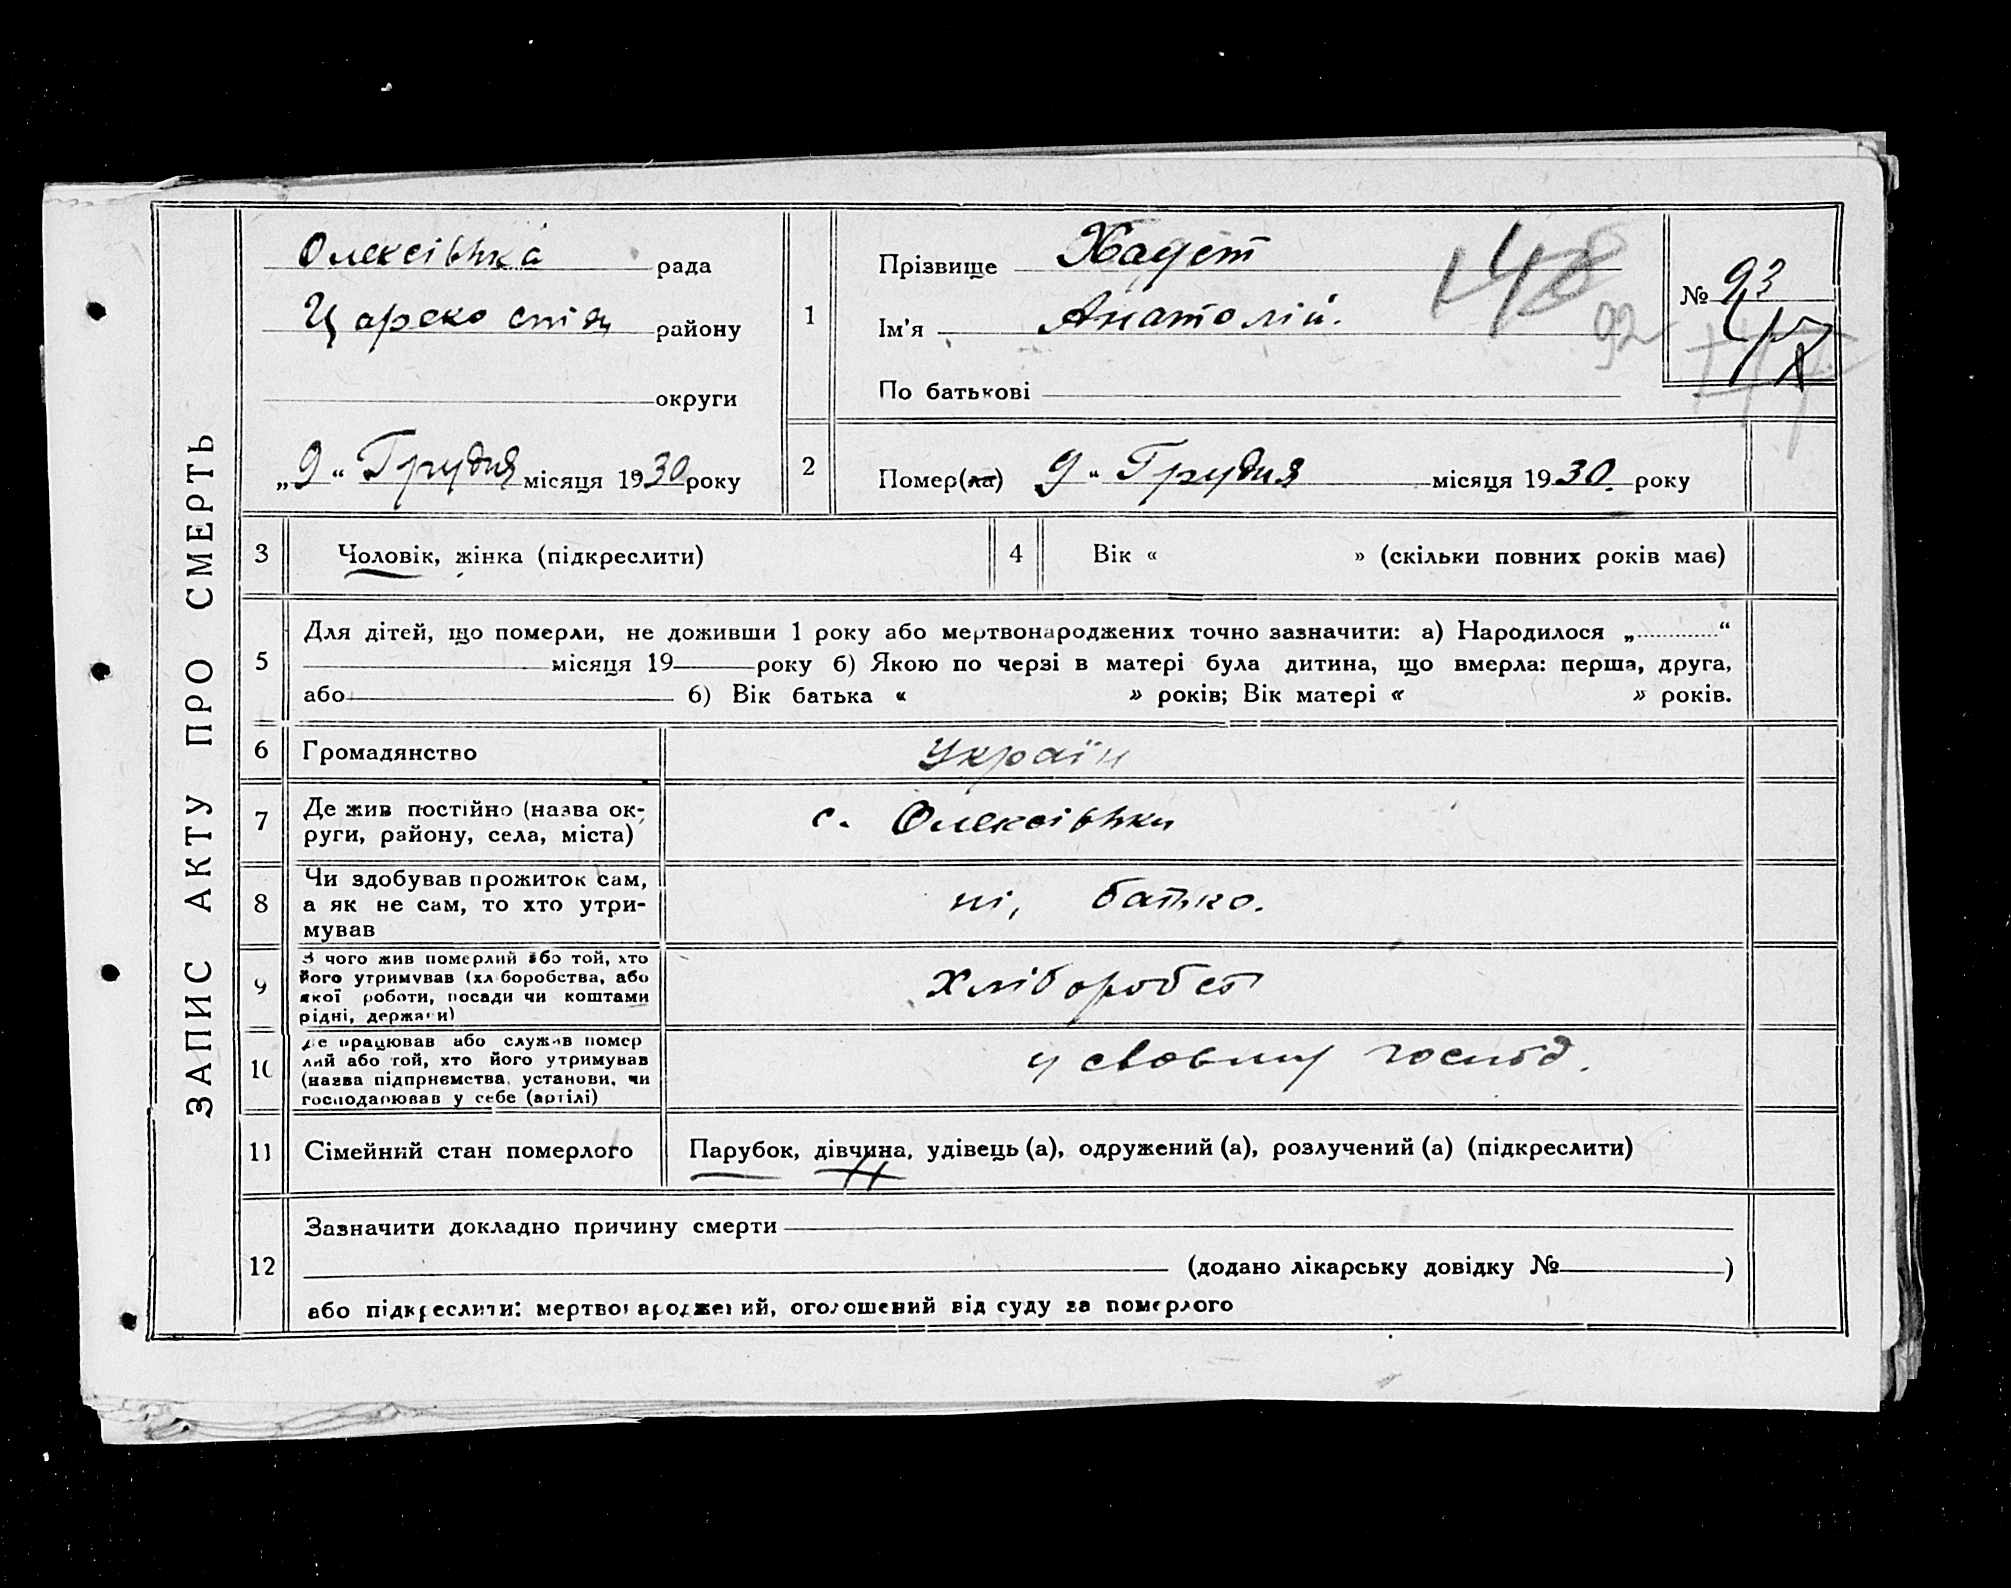 ЗАПИС АКТУ ПРО СМЕРТЬ
Олексівка рада
району
округи
„9“ Грудня місяця 1930 року
1
Прізвище
Ім'я Анатолій.
По батькові
№ 93
92
2
Помер(ла) 9 “ Грудня місяця 1930. року
3 Чоловік, жінка (підкреслити)
4 Вік « » (скільки повних років має)
5
Для дітей, що померли, не доживши 1 року або мертвонароджених точно зазначити: а) Народилося „ “
місяця 19 року б) Якою по черзі в матері була дитина, що вмерла: перша, друга,
або б) Вік батька « » років; Вік матері « » років.
6 Громадянство Україн
7 Де жив постійно (назва ок-
руги, району, села, міста)
с. Олексівки
8 Чи здобував прожиток сам,
а як не сам, то хто утри-
мував
ні, батько.
9 З чого жив померлий або той, хто
його утримував (хліборобства, або
якої роботи, посади чи коштами
рідні, держави)
Хліборобст
10 Де працював або служив помер
лий або той, хто його утримував
(назва підприємства, установи, чи
господарював у себе (артілі)
у своєму господ.
11 Сімейний стан померлого
Парубок, дівчина, удівець (а), одружений (а), розлучений (а) (підкреслити)
12
Зазначити докладно причину смерти
(додано лікарську довідку № )
або підкреслити: мертвонароджений, оголошений від суду за померлого